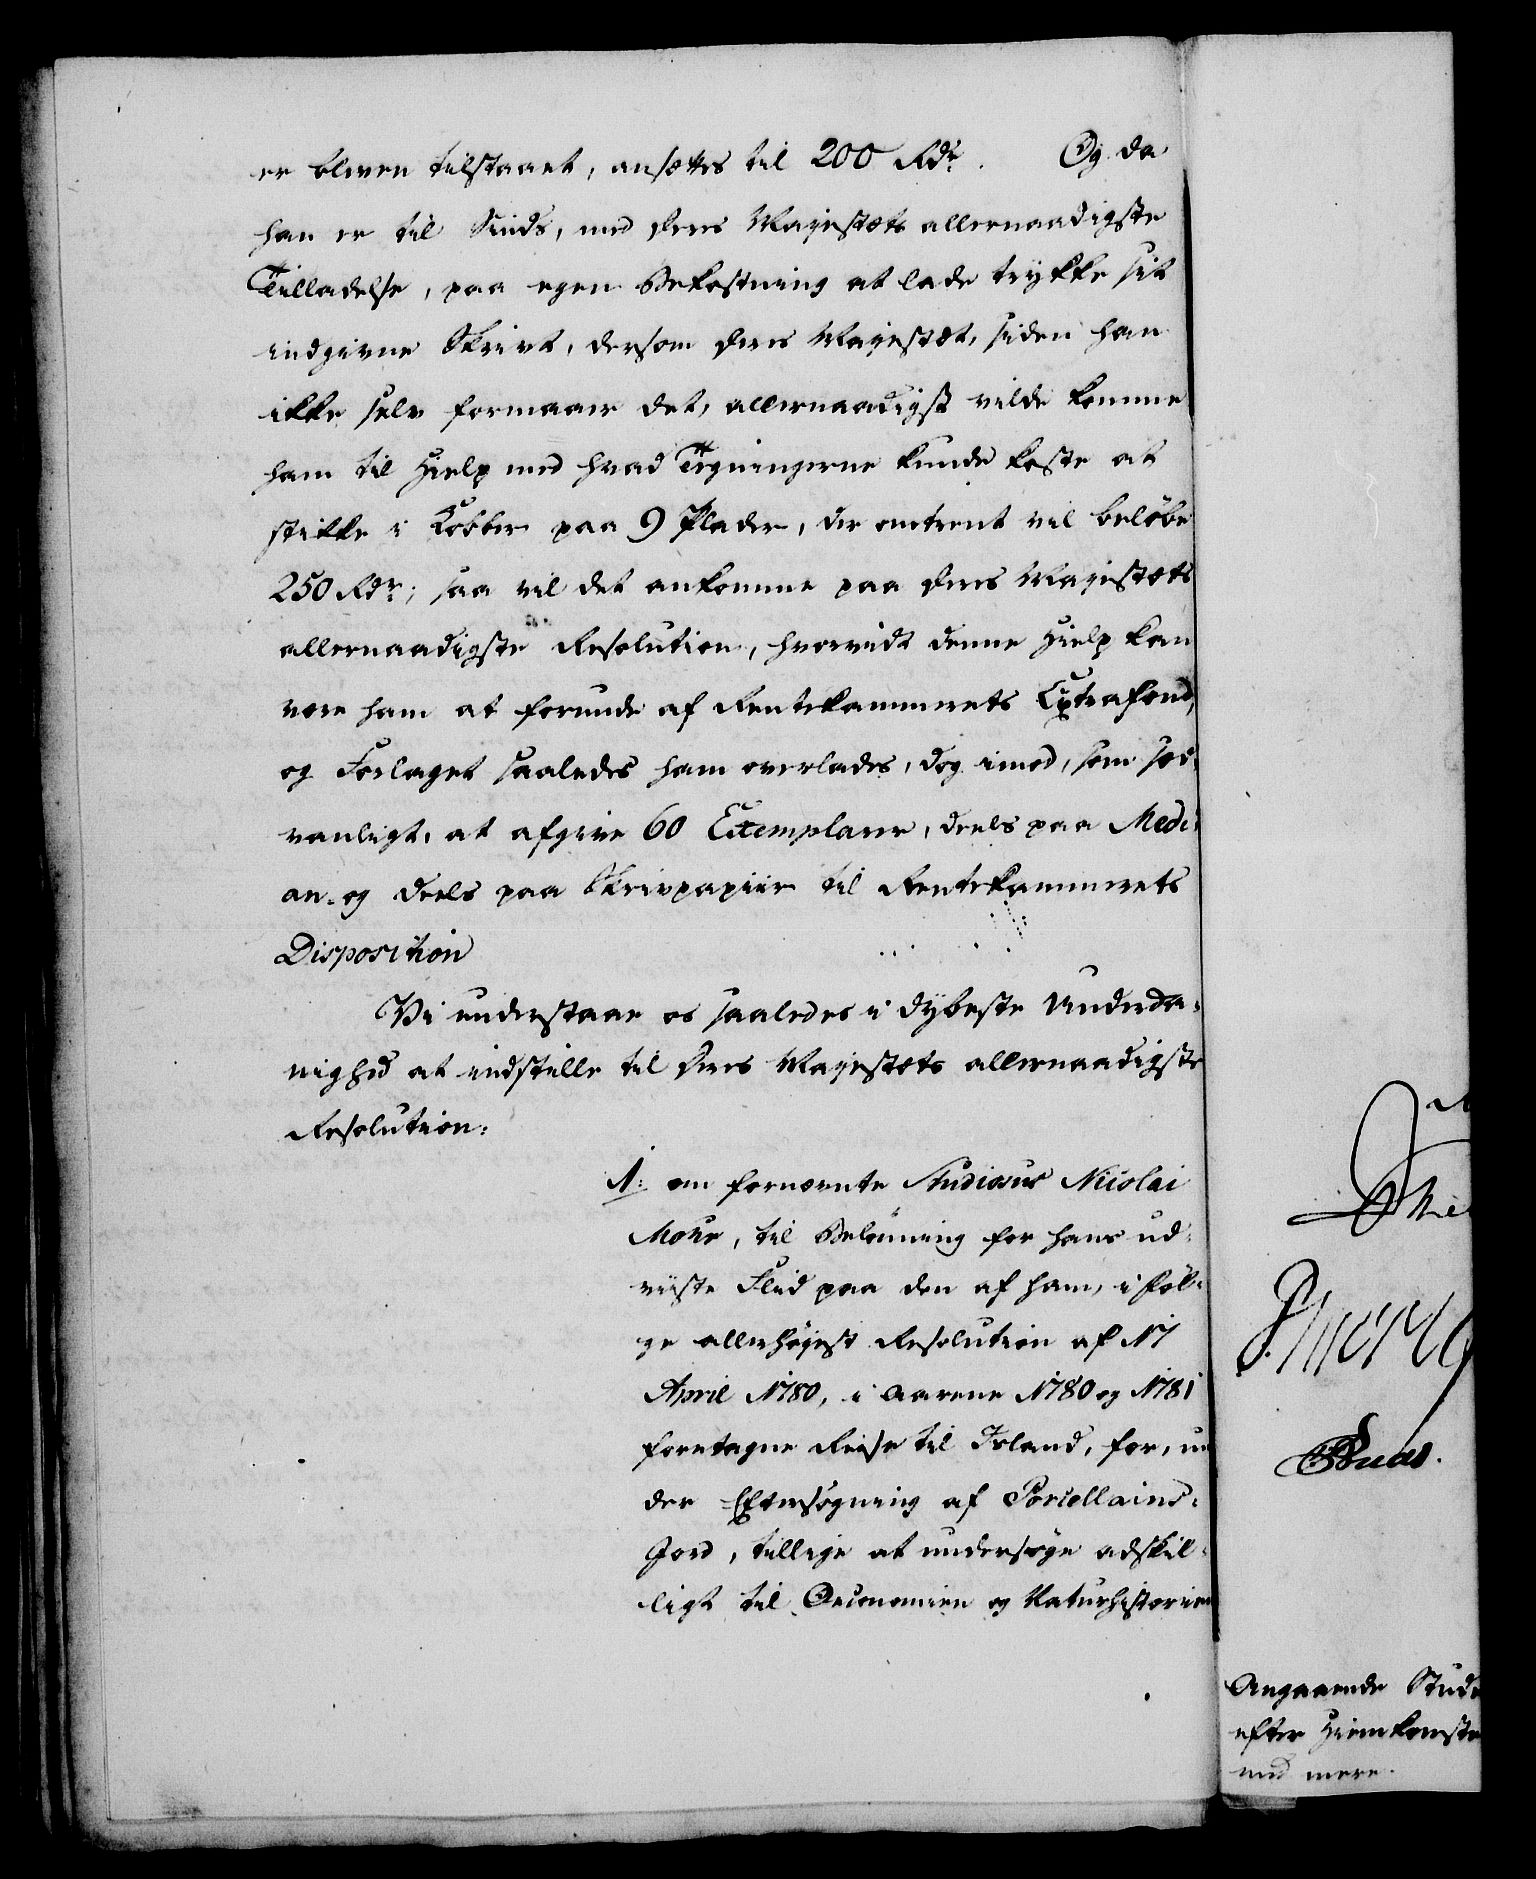 er bleven tilstaaet, ansættes til 200 Rdr. Og da
han er til Sinds, med Deres Majestæts allernaadigste
Tilladelse, paa egen Bekostning at lade trykke sit
indgivne Skrivt, dersom Deres Majestæt, siden han
ikke selv formaaer det, allernaadigst vilde komme
ham til Hielp med hvad Tegningerne kunde koste at
stikke i Kobber paa 9 Plader, der omtrent vil beløbe
250 Rdr; saa vil det ankomme paa Deres Majestæts
allernaadigste Resolution, hvorvidt denne Hielp kan
være ham at forunde af Rentekammerets Extrafond,
og Forlaget saaledes ham overlades, dog imod, som sæd-
vanligt, at afgive 60 Exemplarer, deels paa Medi-
an- og deels paa Skrivpapiir til Rentekammerets
Disposition
Vi understaae os saaledes i dybeste Underda-
nighed at indstille til Deres Majestæts allernaadigste
Resolution:
1: om fornævnte Studiosus Nicolai
Mohr, til Belønning for hans ud-
viiste Fliid paa den af ham, i føl-
ge allerhøjest Resolution af 17
April 1780, i Aarene 1780 og 1781
foretagne Reise til Island, for, un
der Eftersøgning af Porcellains-
Jord, tillige at undersøge adskil-
ligt til Oeconomien og Naturhistorien
Angaaende Stud
efter Hiemkomste
med mere.